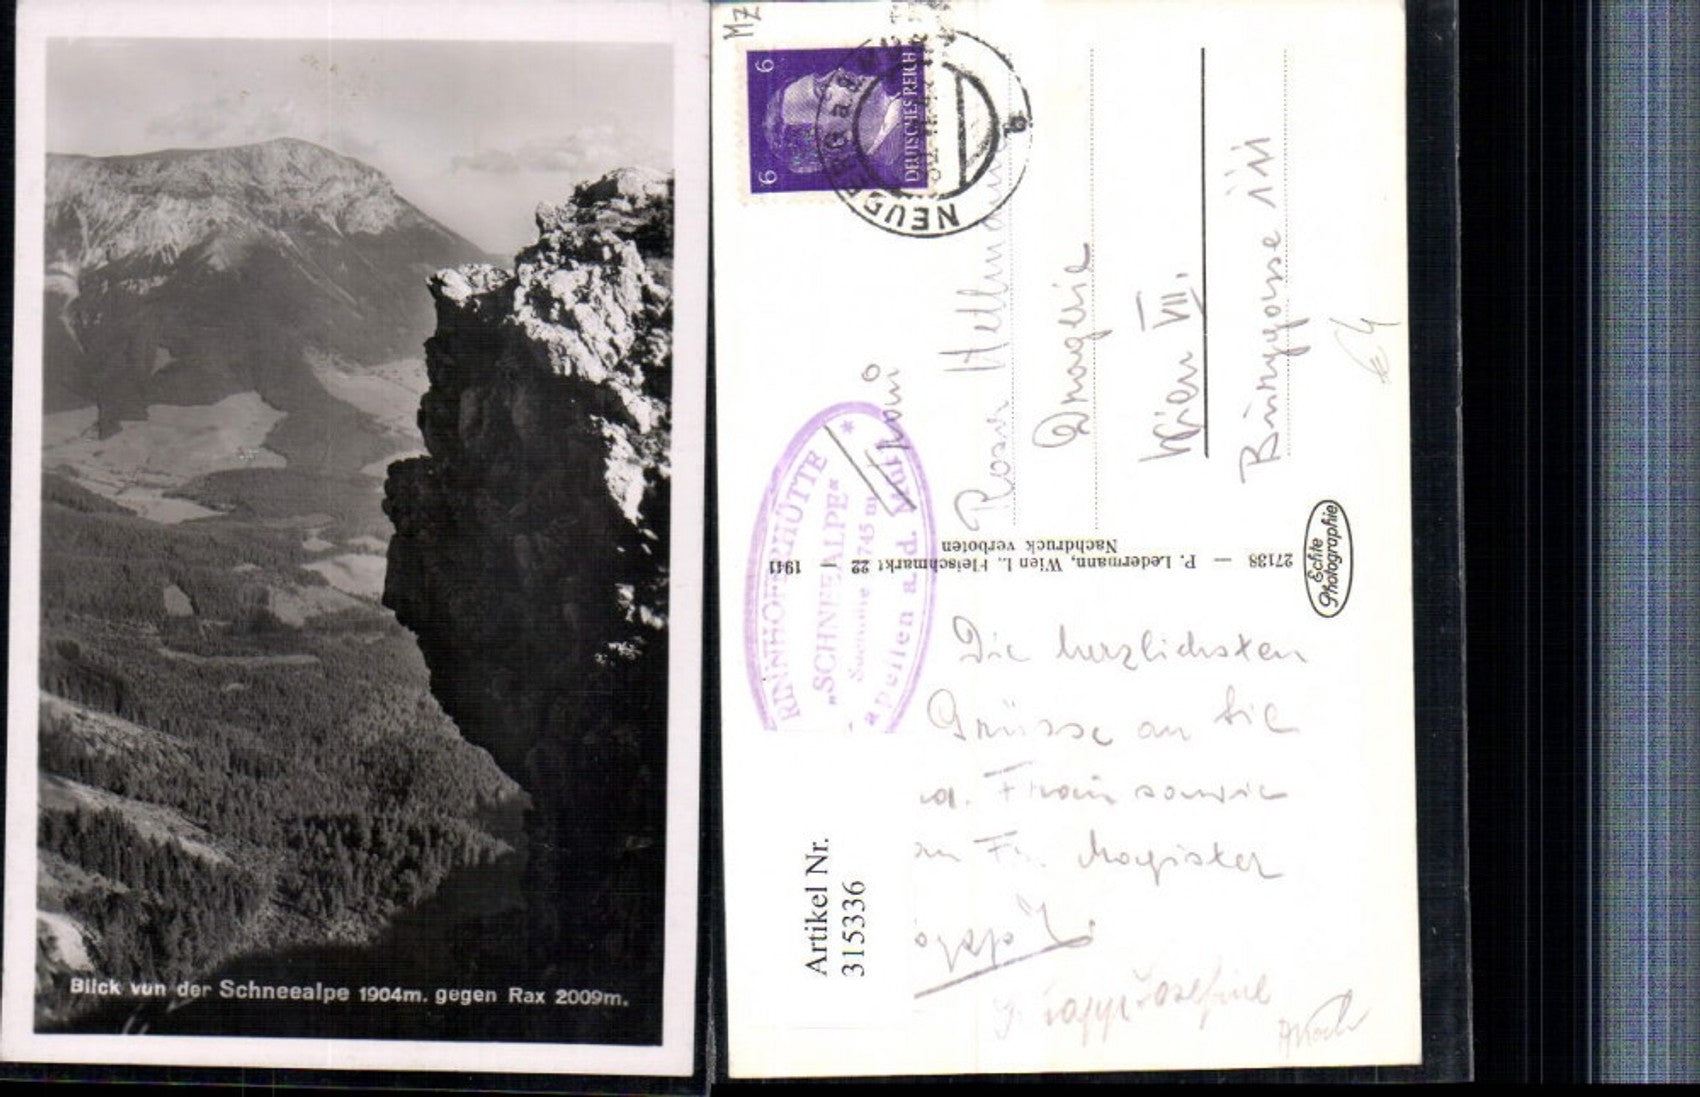 Blick von der Schneealpe 1904m. gegen Rax 2009m.
MZ
6 6
DEUTSCHES REICH
NEUBERG a.d.
Rosa Hellmann
Drogerie
Wien VIII.
€4
RINNHOFERHÜTTE
„SCHNEEALPE“
Seehöhe 1745 m
*
Kapellen a. d.
27138 — P. Ledermann, Wien I., Fleischmarkt 22 1941
Nachdruck verboten
Echte
Photographie
Die herzlichsten
Grüsse an Sie
Fr. Magister
Josefine
Artikel Nr.
315336